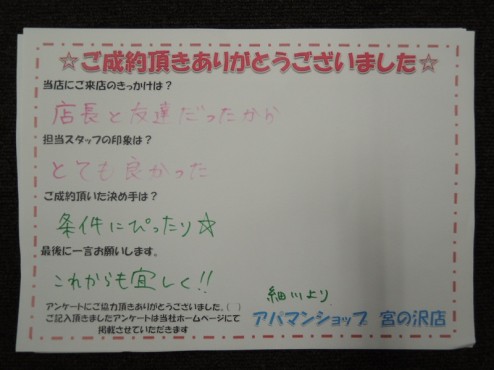 ☆ご成約頂きありがとうございました☆
当店にご来店のきっかけは？
店長と友達だったから
担当スタッフの印象は？
とても良かった
ご成約頂いた決め手は？
条件にぴったり☆
最後に一言お願いします。
これからも宜しく!!
細川より
アンケートにご協力頂きありがとうございました。(__)
ご記入頂きましたアンケートは当社ホームページにて
掲載させていただきます
アパマンショップ 宮の沢店